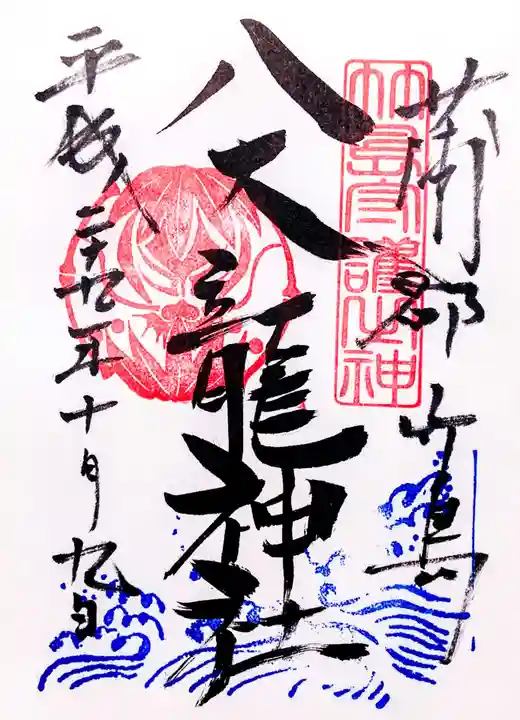 蒲郡竹島
竹島守護神
八大龍神社
平成二十九年十月九日